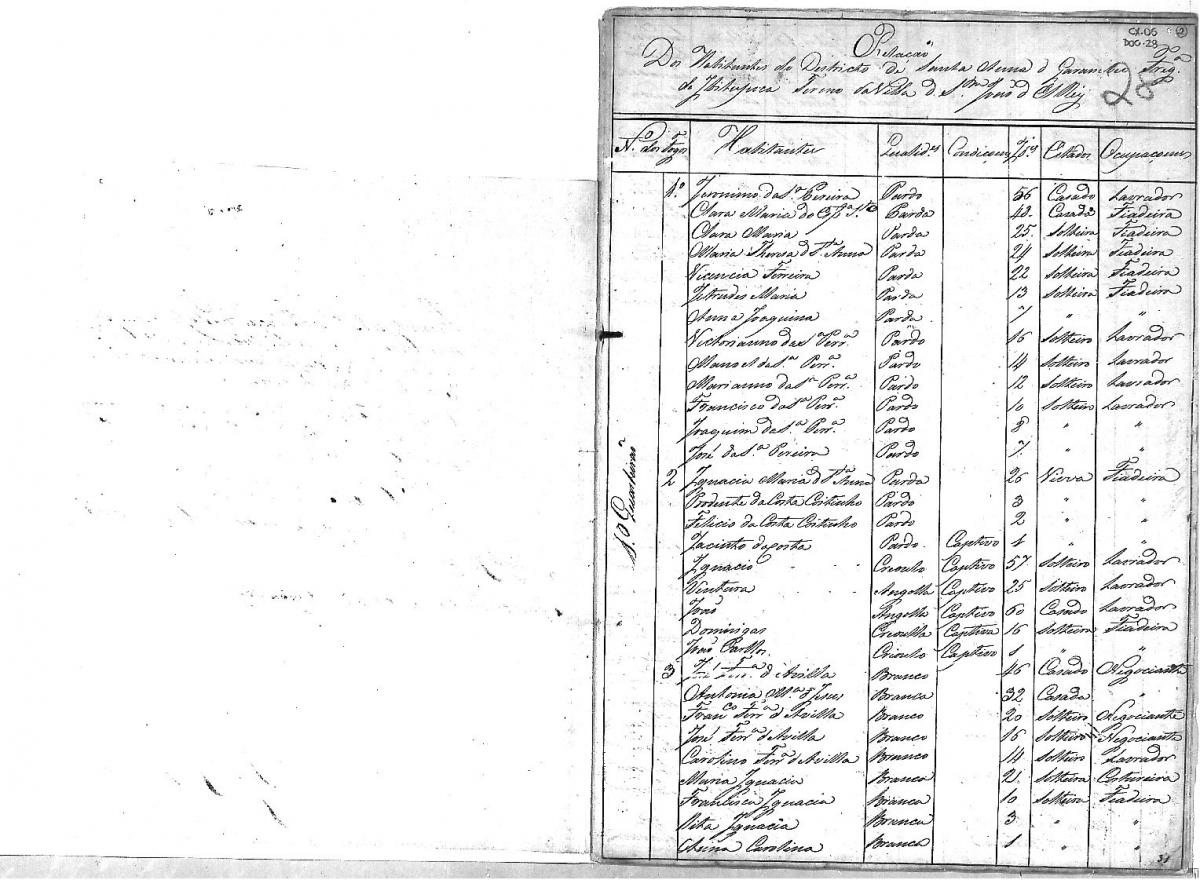 CX-06 2
DOC-28
28
Relação
Dos Habitantes do Districto de Santa Anna d Garambeo Freg.ª
de Ibitipoca Termo da Villa d. S. João d' El Rey
N.º dos Fogos Habitantes Qualid.es Condiçoens Id.es Estados Ocupaçoens
1.º Quarteirão
1.º Jeronimo da S.ª Pereira Pardo 56 Casado Lavrador
Clara Maria do Esp.º St.º Parda 48 Casada Fiadeira
Clara Maria Parda 25 Solteira Fiadeira
Maria Thereza d St.ª Anna Parda 24 Solteira Fiadeira
Vicencia Ferreira Parda 22 Solteira Fiadeira
Jetrudes Maria Parda 13 Solteira Fiadeira
Anna Joaquina Parda 7 " "
Victorianno da S.ª Perr.ª Pardo 16 Solteiro Lavrador
Manoel da S.ª Perr.ª Pardo 14 Solteiro Lavrador
Marianno da S.ª Perr.ª Pardo 12 Solteiro Lavrador
Francisco da S.ª Perr.ª Pardo 10 Solteiro Lavrador
Joaquim da S.ª Perr.ª Pardo 8 " "
José da S.ª Pereira Pardo 7 " "
2 Ignacia Maria d St.ª Anna Parda 26 Viuva Fiadeira
Prodente da Costa Coitinho Pardo 3 " "
Felicio da Costa Coitinho Pardo 2 " "
Jacintho da Costa Pardo Captivo 1 " "
Ignacio Crioulo Captivo 57 Solteiro Lavrador
Ventura Angolla Captivo 25 Solteiro Lavrador
João Angolla Captivo 60 Casado Lavrador
Domingas Crioulla Captiva 16 Solteira Fiadeira
João Carllos Crioulo Captivo 1 " "
3 d' Avilla Branco 46 Casado Negociante
Antonia M.ª d' Jesus Branca 32 Casada "
Fran.co Ferr.ª d' Avilla Branco 20 Solteiro Negociante
José Ferr.ª d' Avilla Branco 16 Solteiro Negociante
Carolino Ferr.ª d' Avilla Branco 14 Solteiro Lavrador
Maria Ignacia Branca 21 Solteira Costureira
Francisca Ignacia Branca 10 Solteira Fiadeira
Rita Ignacia Branca 3 " "
Anna Carolina Branca 1 " "
31